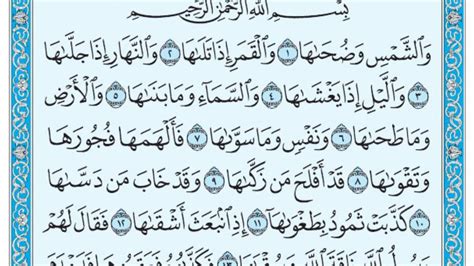 بِسْمِ اللَّهِ الرَّحْمَٰنِ الرَّحِيمِ
وَالشَّمْسِ وَضُحَىٰهَا ١ وَالْقَمَرِ إِذَا تَلَىٰهَا ٢ وَالنَّهَارِ إِذَا جَلَّىٰهَا
٣ وَالَّيْلِ إِذَا يَغْشَىٰهَا ٤ وَالسَّمَآءِ وَمَا بَنَىٰهَا ٥ وَالْأَرْضِ
وَمَا طَحَىٰهَا ٦ وَنَفْسٍ وَمَا سَوَّىٰهَا ٧ فَأَلْهَمَهَا فُجُورَهَا
وَتَقْوَىٰهَا ٨ قَدْ أَفْلَحَ مَن زَكَّىٰهَا ٩ وَقَدْ خَابَ مَن دَسَّىٰهَا
١٠ كَذَّبَتْ ثَمُودُ بِطَغْوَىٰهَا ١١ إِذِ انۢبَعَثَ أَشْقَىٰهَا ١٢ فَقَالَ لَهُمْ